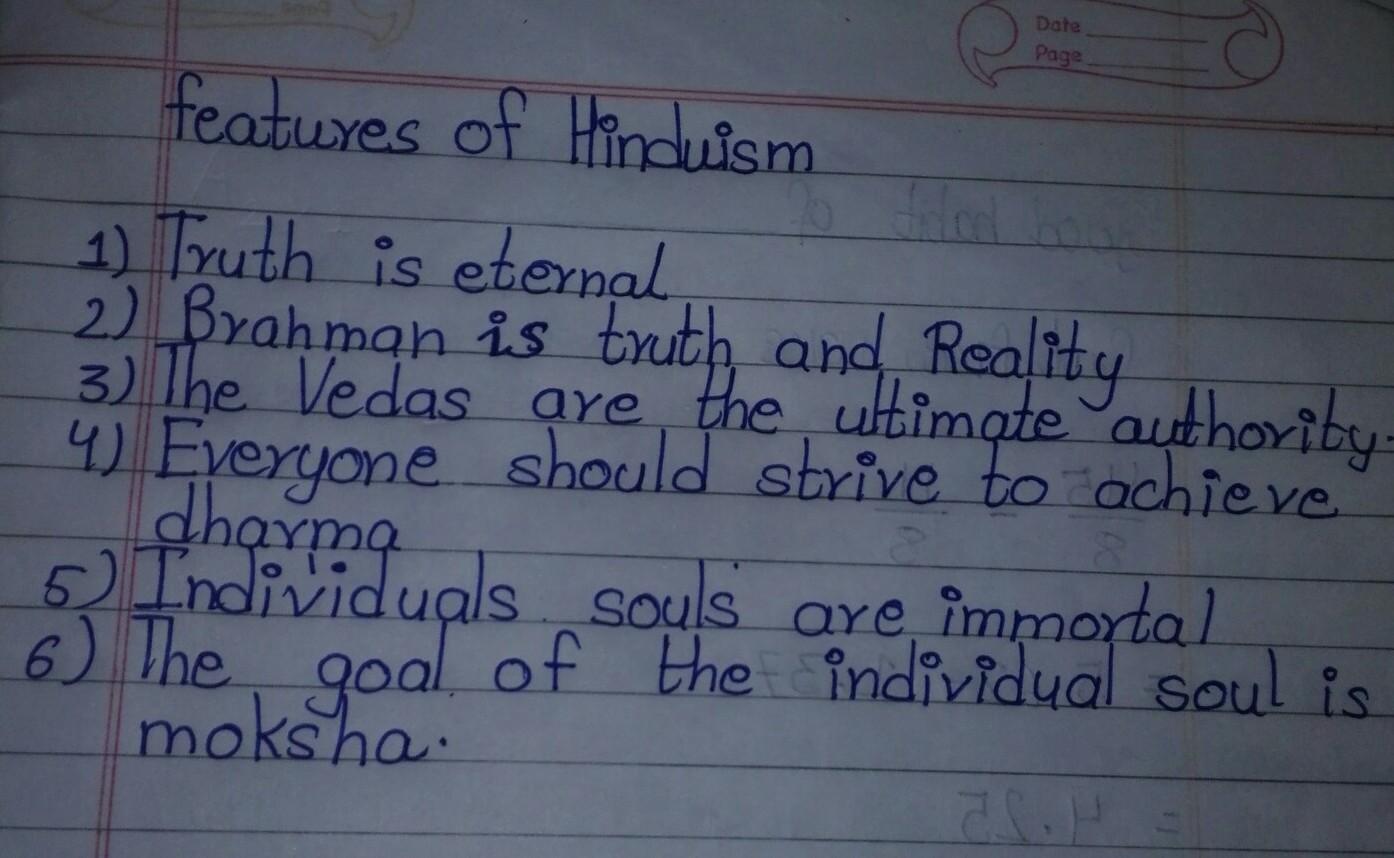 Date
Page
features of Hinduism
1) Truth is eternal
2) Brahman is truth and Reality
3) The Vedas are the ultimate authority.
4) Everyone should strive to achieve
dharma
5) Individuals souls are immortal
6) The goal of the individual soul is
moksha.